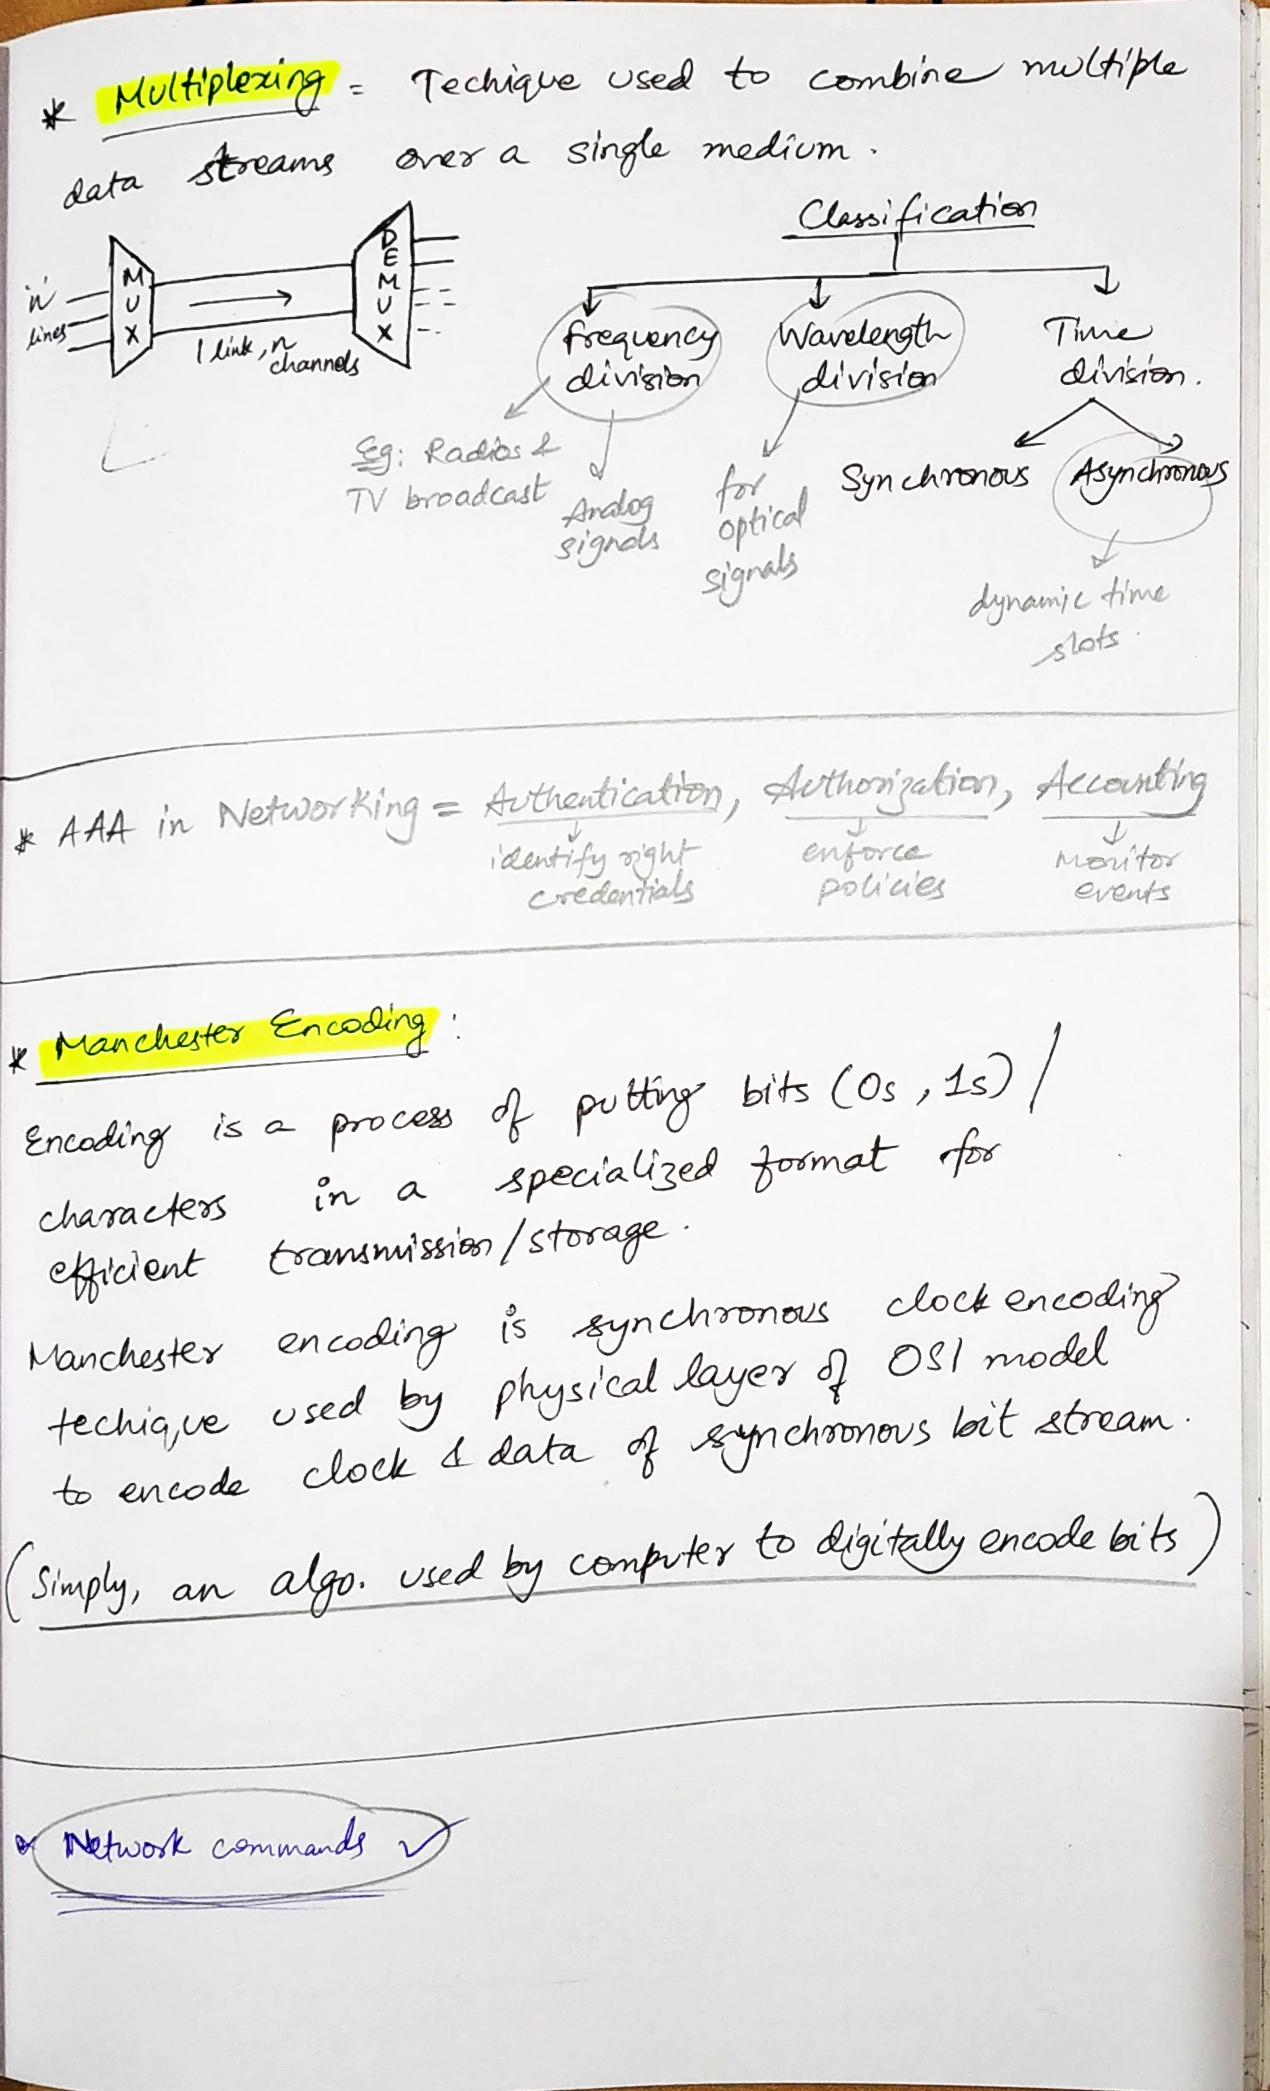 * Multiplexing = Techique used to combine multiple
data streams over a single medium.
Classification
'n'
lines
MUX
1 link, n
channels
DEMUX
frequency
division
Wavelength
division
Time
division.
Eg: Radios &
TV broadcast
Analog
signals
for
optical
signals
Synchronous
Asynchronous
dynamic time
slots.
* AAA in Networking = Authentication, Authorization, Accounting
identify right
credentials
enforce
policies
Monitor
events
* Manchester Encoding:
Encoding is a process of putting bits (0s, 1s) /
characters in a specialized format for
efficient transmission/storage.
Manchester encoding is synchronous clock encoding
techique used by physical layer of OSI model
to encode clock & data of synchronous bit stream.
(Simply, an algo. used by computer to digitally encode bits)
* Network commands ✓